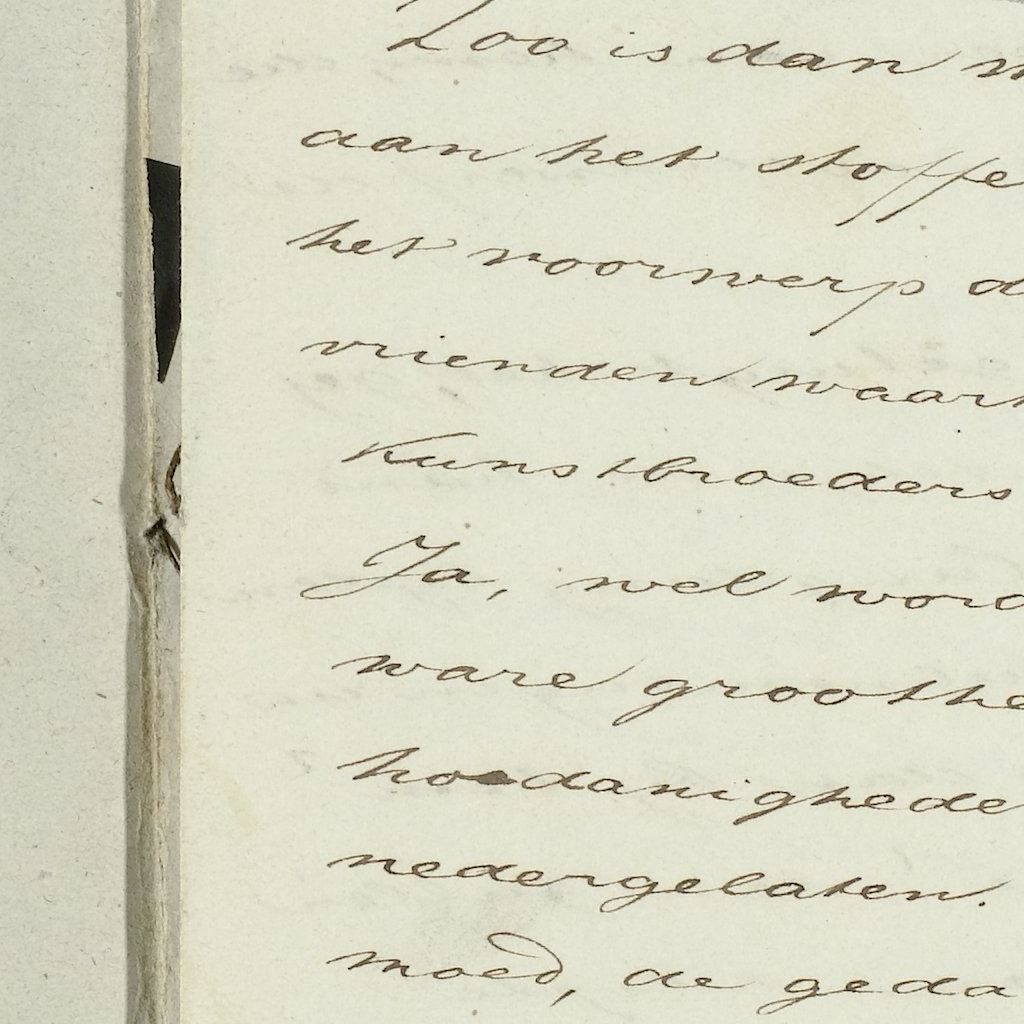 Zoo is dan
aan het stoffe
het voorwerp d
vrienden waar
Kunstbroeders
Ja, wel word
ware groothe
hoedanighede
nedergelaten.
moed, de geda